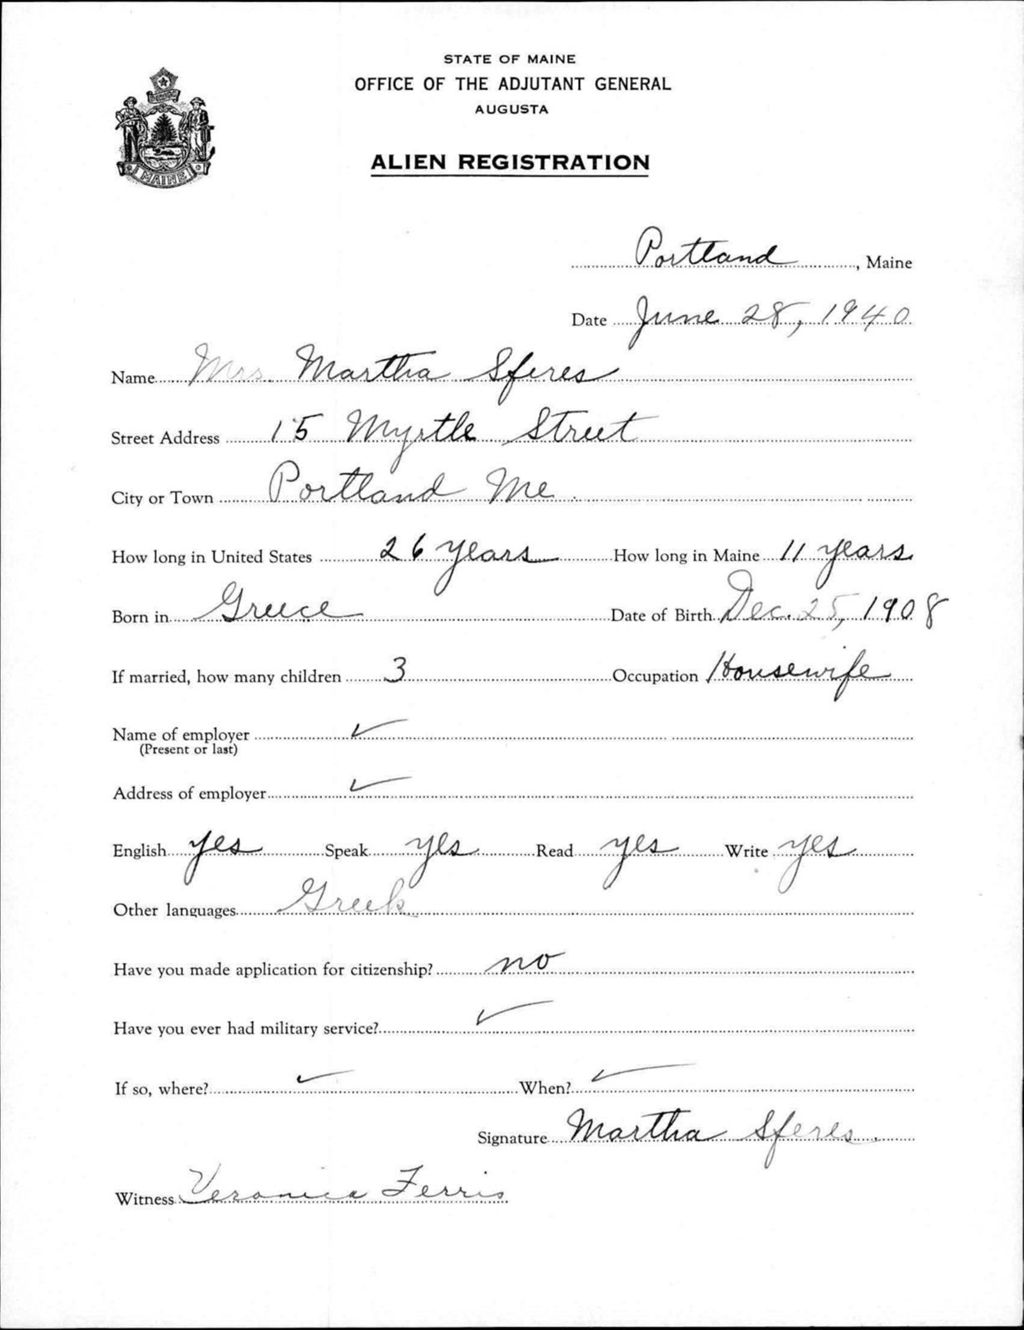 STATE OF MAINE
OFFICE OF THE ADJUTANT GENERAL
AUGUSTA
ALIEN REGISTRATION
MAINE
Portland, Maine
Date June 28, 1940
Name Mrs. Martha Sferes
Street Address 15 Myrtle Street
City or Town Portland Me.
How long in United States 26 years How long in Maine 11 years
Born in Greece Date of Birth Dec. 25, 1908
If married, how many children 3 Occupation Housewife
Name of employer ✓
(Present or last)
Address of employer ✓
English yes Speak yes Read yes Write yes
Other languages Greek
Have you made application for citizenship? no
Have you ever had military service? ✓
If so, where? ✓ When? ✓
Signature Martha Sferes.
Witness Veronica Ferris